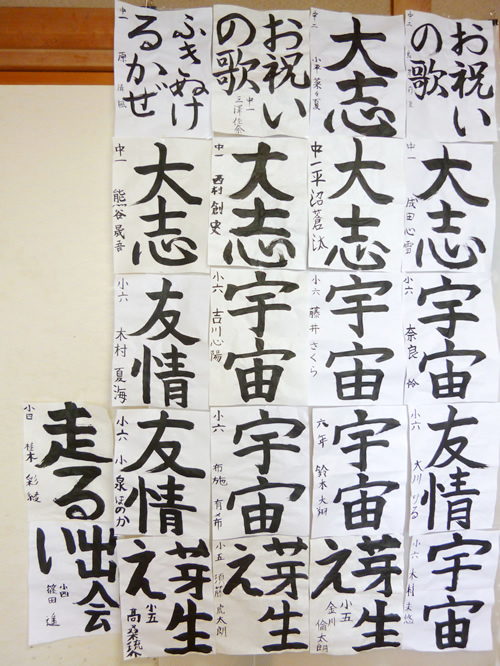 お祝い
の歌
中二
大志
中二
小平菜々夏
お祝い
の歌
中一
三澤佳奈
ふきぬけ
るかぜ
中一
原
大志
中一
成田心雪
大志
中一
平沼蒼汰
大志
中一
西村創史
大志
中一
熊谷晟吾
宇宙
小六
奈良怜
宇宙
小六
藤井さくら
宇宙
小六
吉川心陽
友情
小六
木村夏海
友情
小六
大川りる
宇宙
六年
鈴木大翔
宇宙
小六
布施有希
友情
小六
小泉ほのか
走る
小四
桂木彩綾
宇宙
小六
木村
芽生
え
小五
金川倫太朗
芽生
え
小五
須藤虎太朗
芽生
え
小五
高桑
出会
い
小四
篠田遥